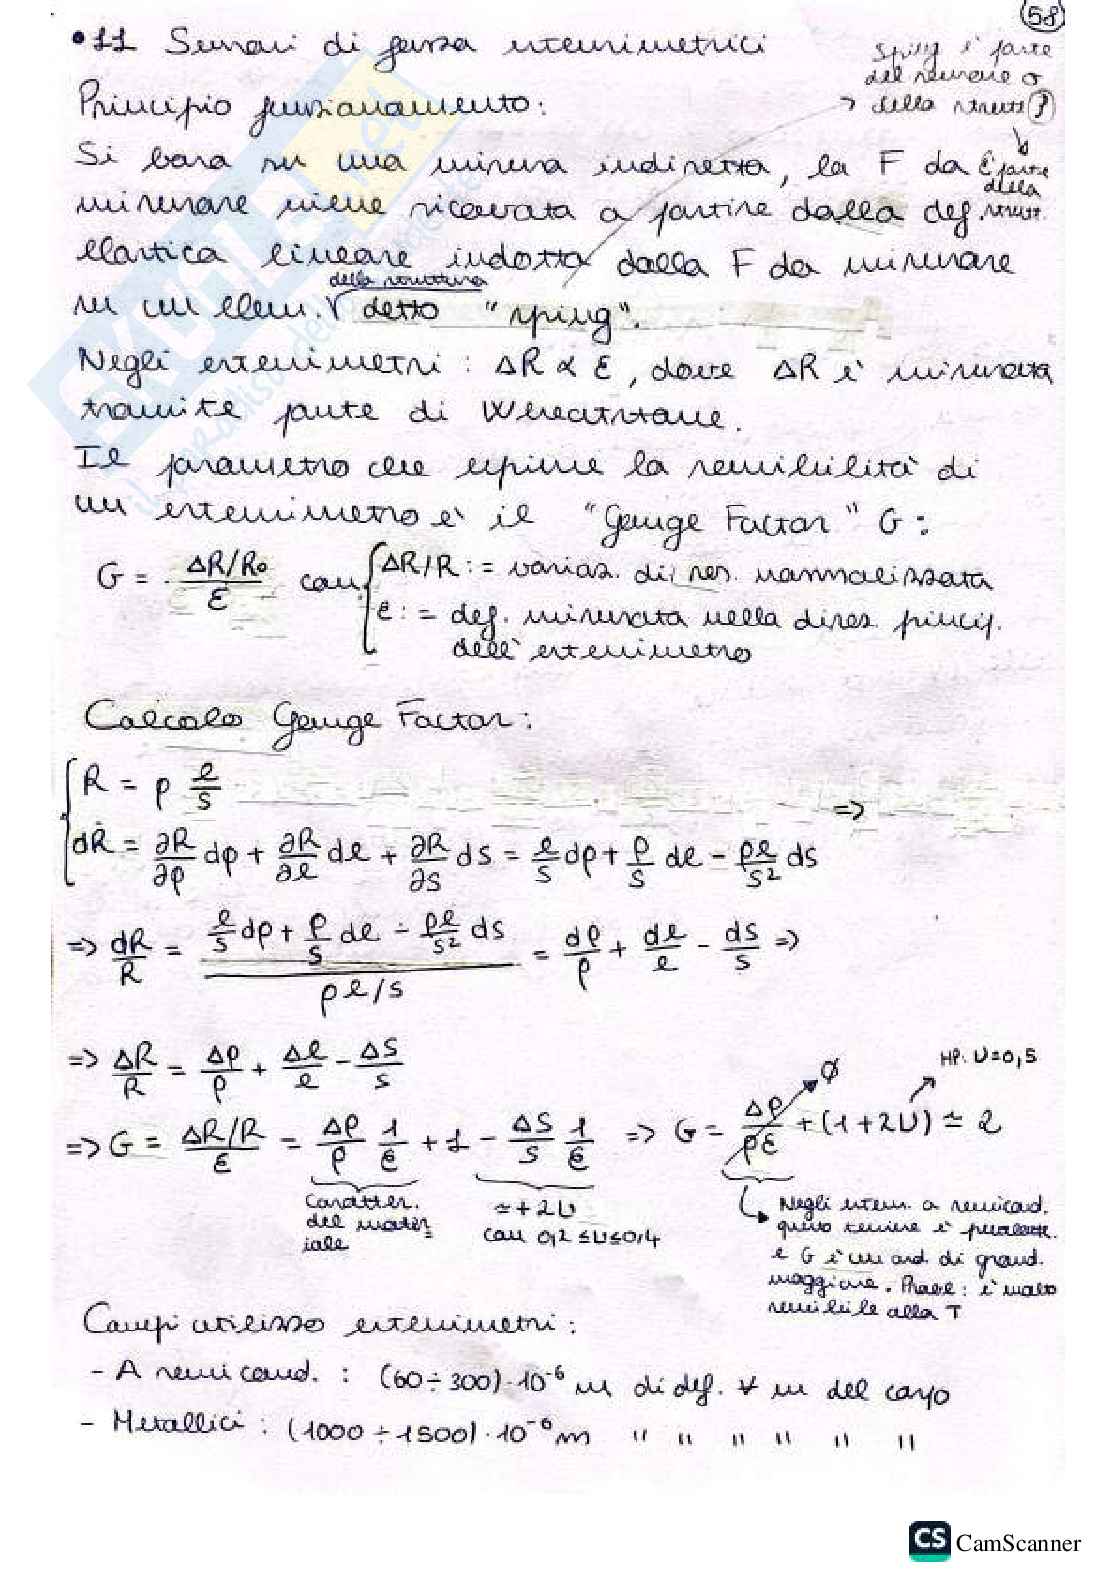 58
•11 Sensori di forza estensimetrici
Spring è parte
del sensore o
→ della strutt?
È parte
della
strutt.
Principio funzionamento:
Si basa su una misura indiretta, la F da
misurare viene ricavata a partire dalla def.
elastica lineare indotta dalla F da misurare
della struttura
su un elem. detto "sping".
Negli estensimetri: ΔR ∝ ε, dove ΔR è misurata
tramite ponte di Wheatstone.
Il parametro che esprime la sensibilità di
un estensimetro è il "Gauge Factor" G:
G = (ΔR/R₀)/ε con { ΔR/R := variaz. di res. normalizzata
ε := def. misurata nella direz. princip.
dell'estensimetro
Calcolo Gauge Factor:
{ R = ρ l/s
dR = ∂R/∂ρ dρ + ∂R/∂l dl + ∂R/∂s ds = l/s dρ + ρ/s dl - ρl/s² ds =>
=> dR/R = (l/s dρ + ρ/s dl - ρl/s² ds)/(ρ l/s) = dρ/ρ + dl/l - ds/s =>
=> ΔR/R = Δρ/ρ + Δl/l - Δs/s
=> G = (ΔR/R)/ε = Δρ/ρ 1/ε + 1 - Δs/s 1/ε => G = Δρ/ρε + (1+2υ) ≃ 2
∅
HP. υ=0,5
Caratter.
del mater
iale
≃ +2υ
con 0,2 ≤υ≤0,4
Negli esten. a semicond.
questo termine è
e G è un ord. di grand.
maggiore. : è molto
sensibile alla T
Campi utilizzo estensimetri:
- A semicond. : (60÷300)·10⁻⁶ m di def. ∀ m del
- Metallici : (1000÷1500)·10⁻⁶ m " " " " " "
CS CamScanner